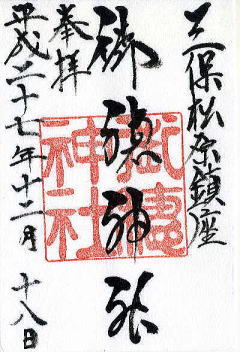 三保松原鎮座
奉拝
御穂神社
御穂神社
平成二十七年十二月十八日